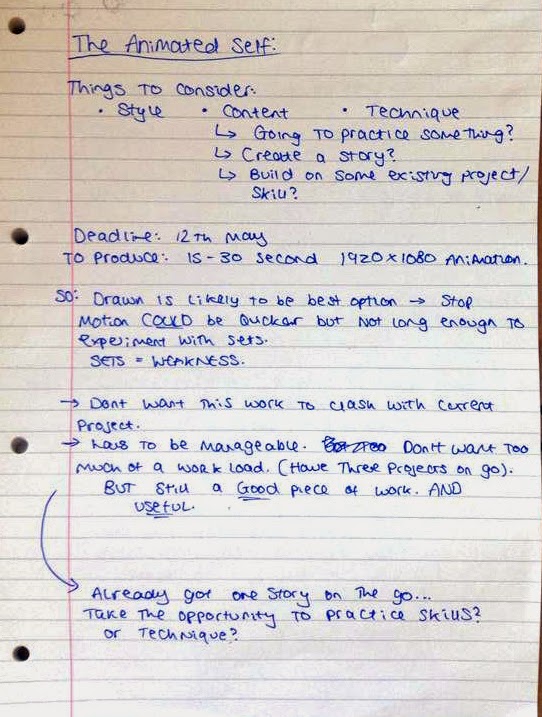 The Animated Self:
Things to consider:
• Style • Content • Technique
↳ Going to practice something?
↳ Create a story?
↳ Build on some existing project/
skill?
Deadline: 12th May
To produce: 15-30 second 1920x1080 Animation.
So: Drawn is likely to be best option → Stop
Motion COULD be quicker but not long enough to
experiment with sets.
SETS = WEAKNESS.
→ Dont want this work to clash with current
Project.
→ has to be manageable. Don't want too
much of a work load. (Have three projects on go).
BUT still a Good piece of work. AND
useful.
Already got one story on the go...
Take the opportunity to practice skills?
or Technique?